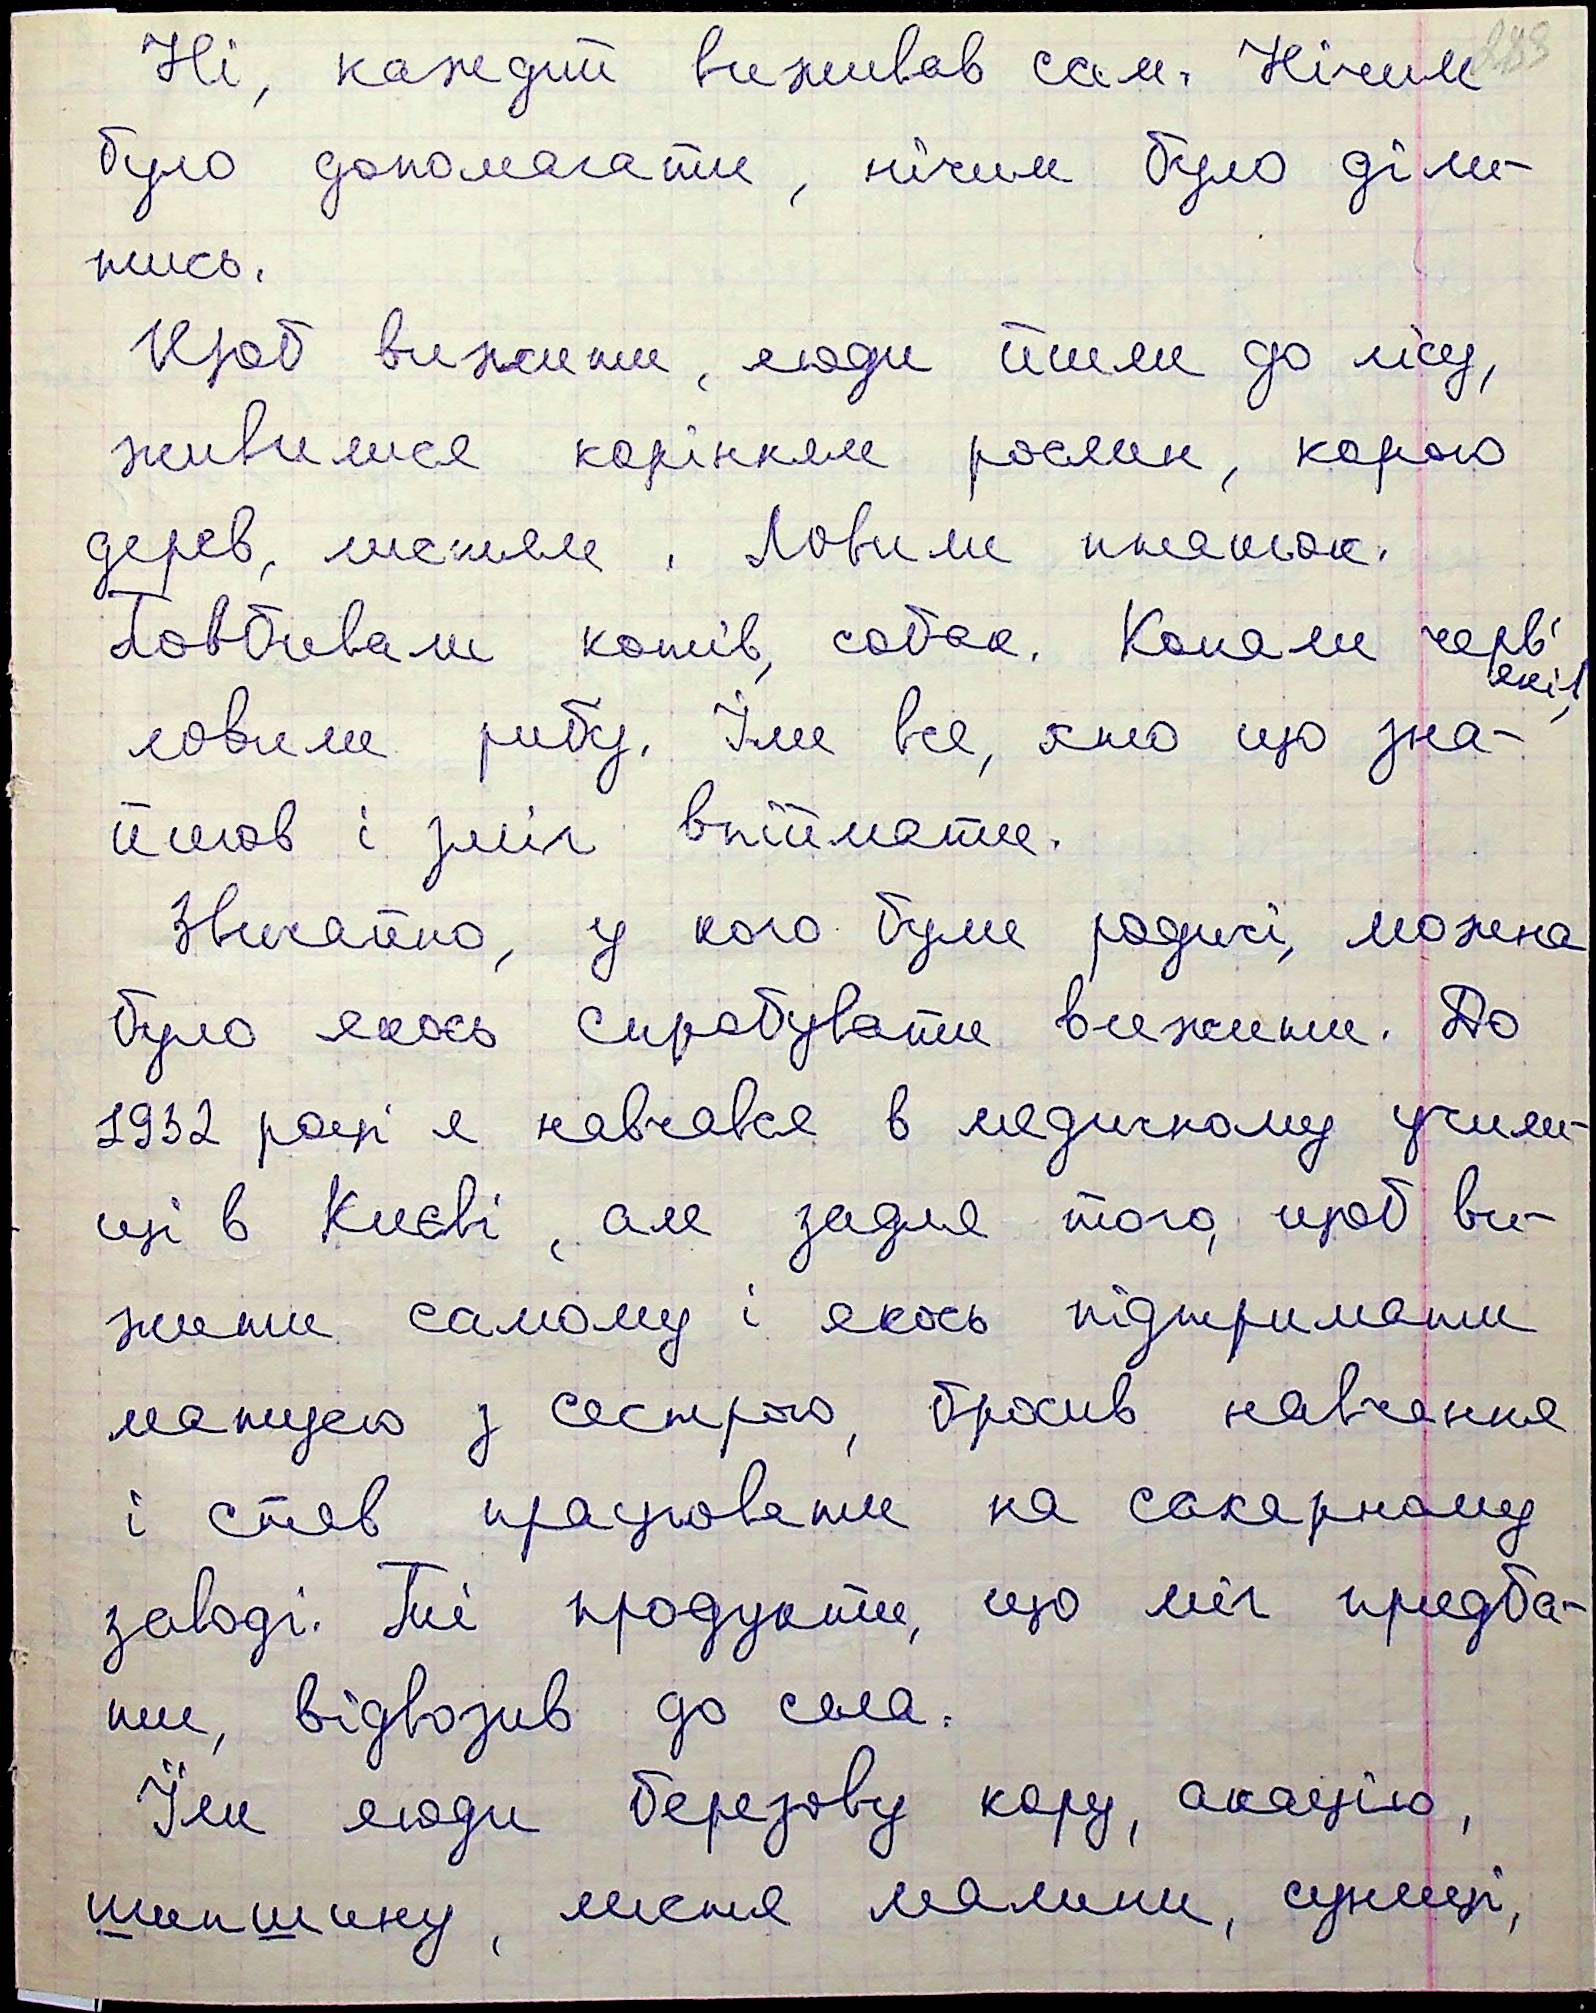 283
Ні, каждий виживав сам. Нічим
було допомагати, нічим було діли-
тись.
Щоб вижити, люди йшли до лісу,
живилися корінням рослин, корою
дерев, листям. Ловили пташок.
Повбивали котів, собак. Копали черв'
яків,
ловили рибу. Їли все, хто що зна-
йшов і зміг впіймати.
Звичайно, у кого були родичі, можна
було якось спробувати вижити. До
1932 році я навчався в медичному учили-
щі в Києві, але задля того, щоб ви-
жити самому і якось підтримати
матусю з сестрою, бросив навчання
і став працювати на сахарному
заводі. Ті продукти, що міг придба-
ти, відвозив до села.
Їли люди березову кору, акацію,
шипшину, листя малини, суниці,